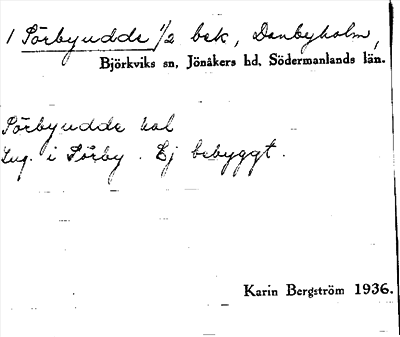 1 Sörbyudde 1/2 bek, Danbyholm,
Björkviks sn, Jönåkers hd, Södermanlands län.
Sörbyudde hal
Lug. i Sörby. Ej bebyggt.
Karin Bergström 1936.